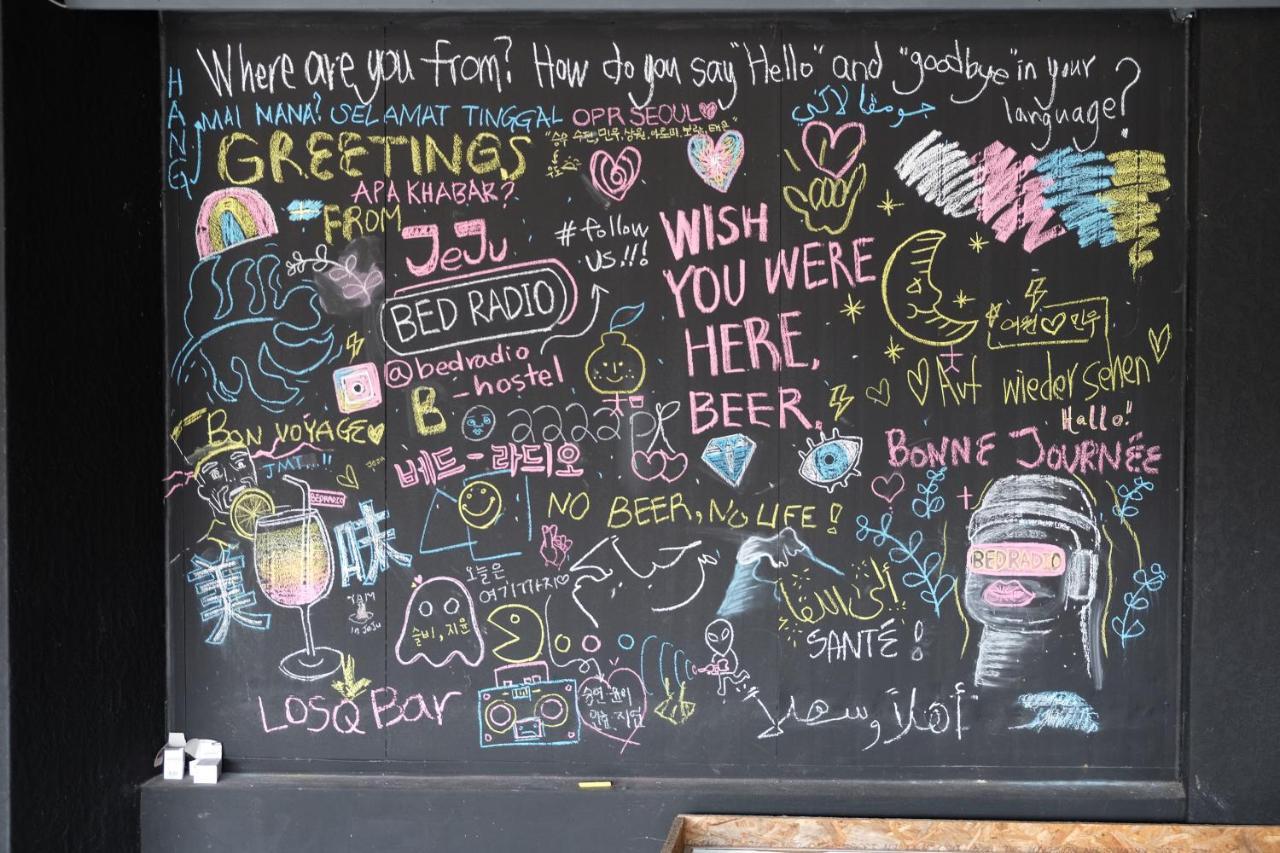 Where are you from? How do you say "Hello" and "goodbye" in your
language?
HANG
MAI MANA? SELAMAT TINGGAL OPR SEOUL
GREETINGS
APA KHABAR?
FROM
JeJu
#follow
us!!!
BED RADIO
@bedradio
_hostel
B
WISH
YOU WERE
HERE,
BEER.
여원♡민우
Auf wiedersehen
Hallo!
BONNE JOURNÉE
BON VOYAGE
JMT...!!
베드-라디오
BEDRADIO
NO BEER, NO LIFE!
美
味
오늘은
여기까지♡
YAM
in JeJu
슬비, 지윤
إلى اللقاء
SANTÉ!
BEDRADIO
أهلاً وسهلاً
LOSQ Bar